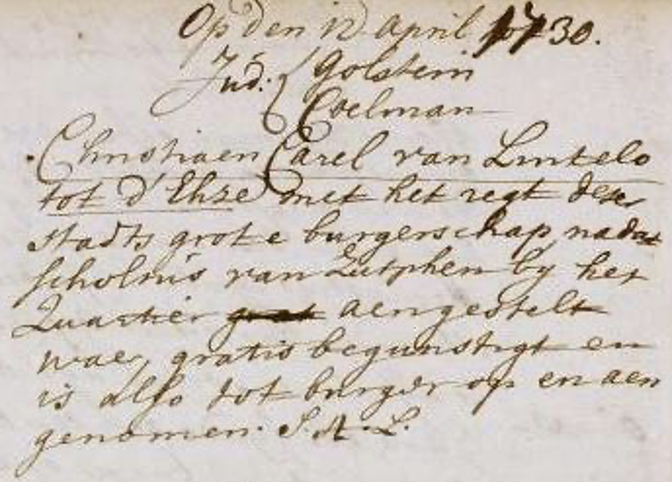 Op den 12 April 1730.
Jud: { Golstein
Coelman
Christiaen Carel van Lintelo
tot d'Ehze met het regt deser
stadts grote burgerschap, nadat
scholtis van Zutphen by het
Quartier aengestelt
waer, gratis begunstigt en
is also tot burger op en aen
genomen. S.A.L.